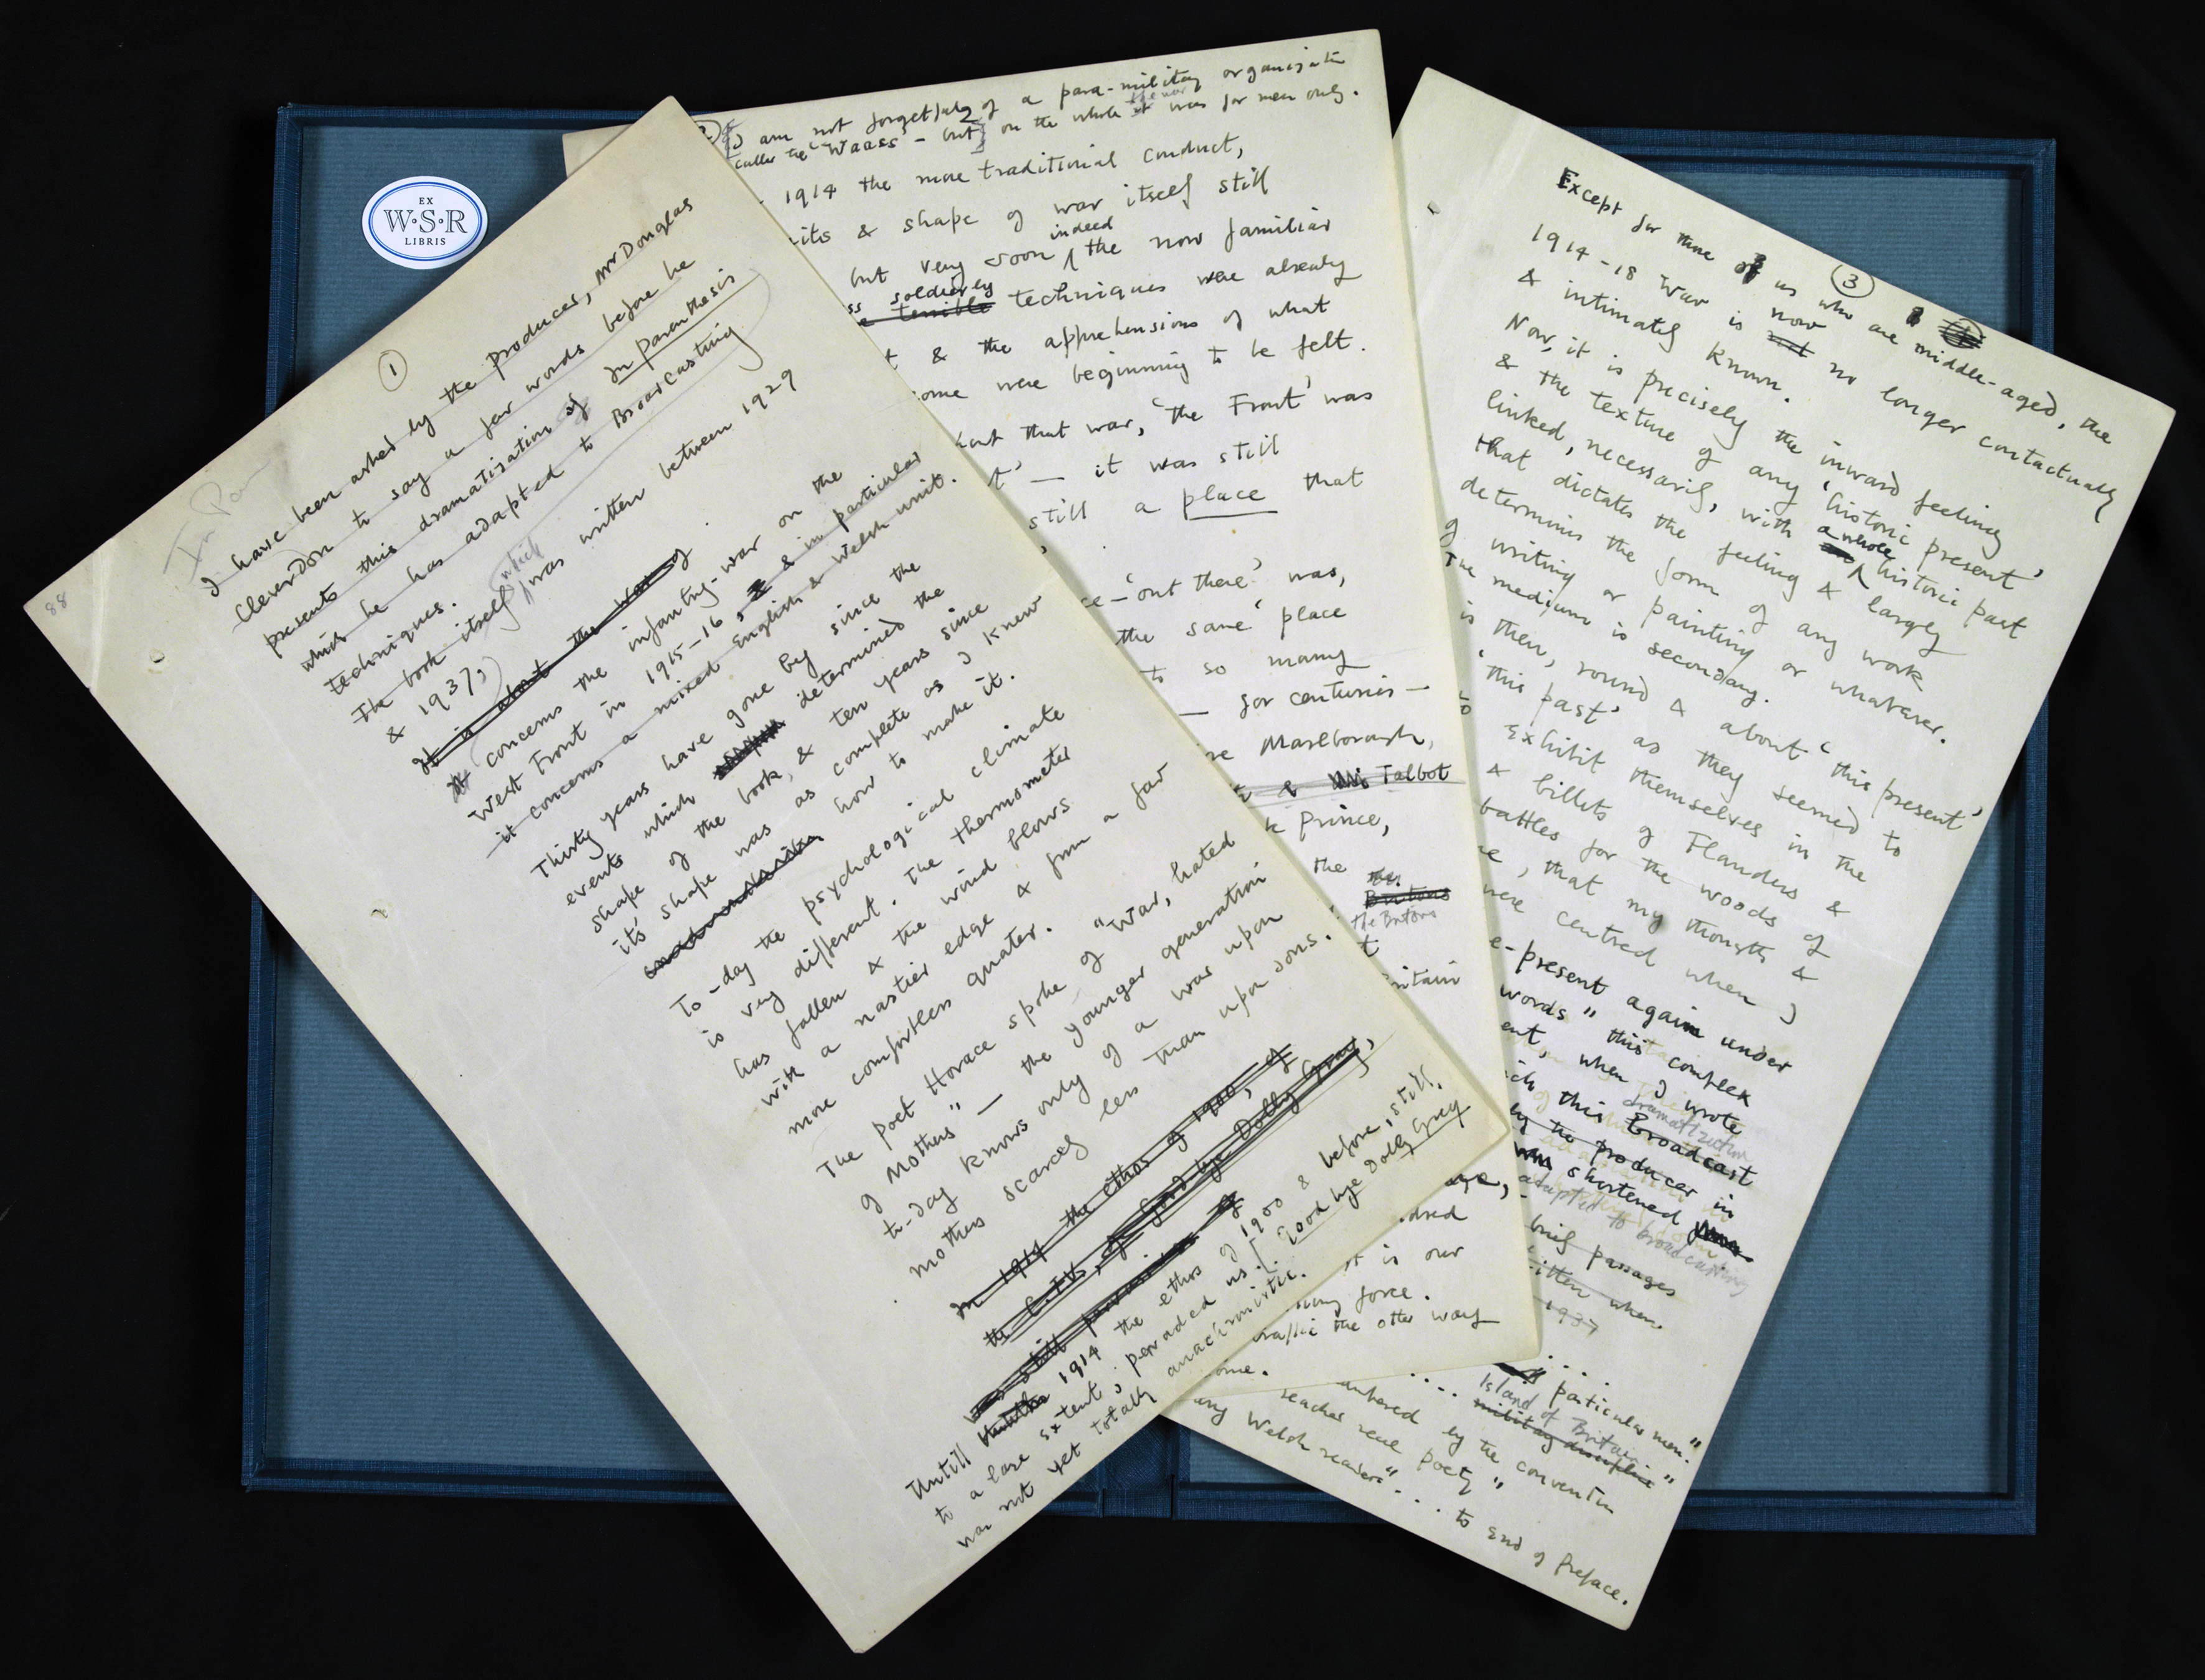 EX
W·S·R
LIBRIS
88
1
I have been asked by the producer, Mr Douglas
Cleverdon to say a few words before he
presents this dramatization of In Parenthesis
which he has adapted to Broadcasting
techniques.
The book itself, which was written between 1929
& 1937,
It is about the war of
It concerns the infantry-war on the
West Front in 1915-16, & in particular
it concerns a mixed English & Welsh unit.
Thirty years have gone by since the
events which determined the
shape of the book, & ten years since
its' shape was as complete as I knew
how to make it.
To-day the psychological climate
is very different. The thermometer
has fallen & the wind blows
with a nastier edge & from a far
more comfortless quater.
The poet Horace spoke of "War, hated
of Mothers" — the younger generation
to-day knows only of a war upon
mothers scarcely less than upon sons.
In 1914 the ethos of 1900, of
the C.I.V.s, of Good bye Dolly Gray,
was still pervasive
Untill 1914 the ethos of 1900 & before, still,
to a lare extent, pervaded us. [Goodbye Dolly Grey
was not yet totally anachronistic.
I am not forgetful of a para-military organisation
called the 'Waass' - but on the whole the war it was for men only.
1914 the more traditional conduct,
& shape of war itself still
but very soon indeed the now familiar
soldierly
terrible techniques were already
& the apprehensions of what
come were beginning to be felt.
that war, 'the Front' was
— it was still
still a place that
'out there', was,
the same 'place
to so many
— for centuries —
Marlborough,
& Talbot
Prince,
the
Britons
the Britons
is our
force.
traffic the other way
3
Except for those of us who are middle-aged, the
1914-18 War is now not no longer contactually
& intimately known.
Now, it is precisely the inward feeling
& the texture of any 'historic present'
linked, necessarily, with a whole historic past
that dictates the feeling & largely
determins the form of any work
of writing or painting or whatever.
The medium is secondary.
is then, round & about 'this present'
'this past' as they seemed to
exhibit themselves in the
& billets of Flanders &
battles for the woods of
, that my thoughts &
were centred when I
-present again under
words "this complex
, when I wrote
this Broadcast
dramatization
by the producer in
shortened
adapted to broadcasting
brief passages
written when
1937
particular men."
Island of Britain"
military discipline"
by the convention
reaches real poetry"
Welsh readers" .... to end of preface.